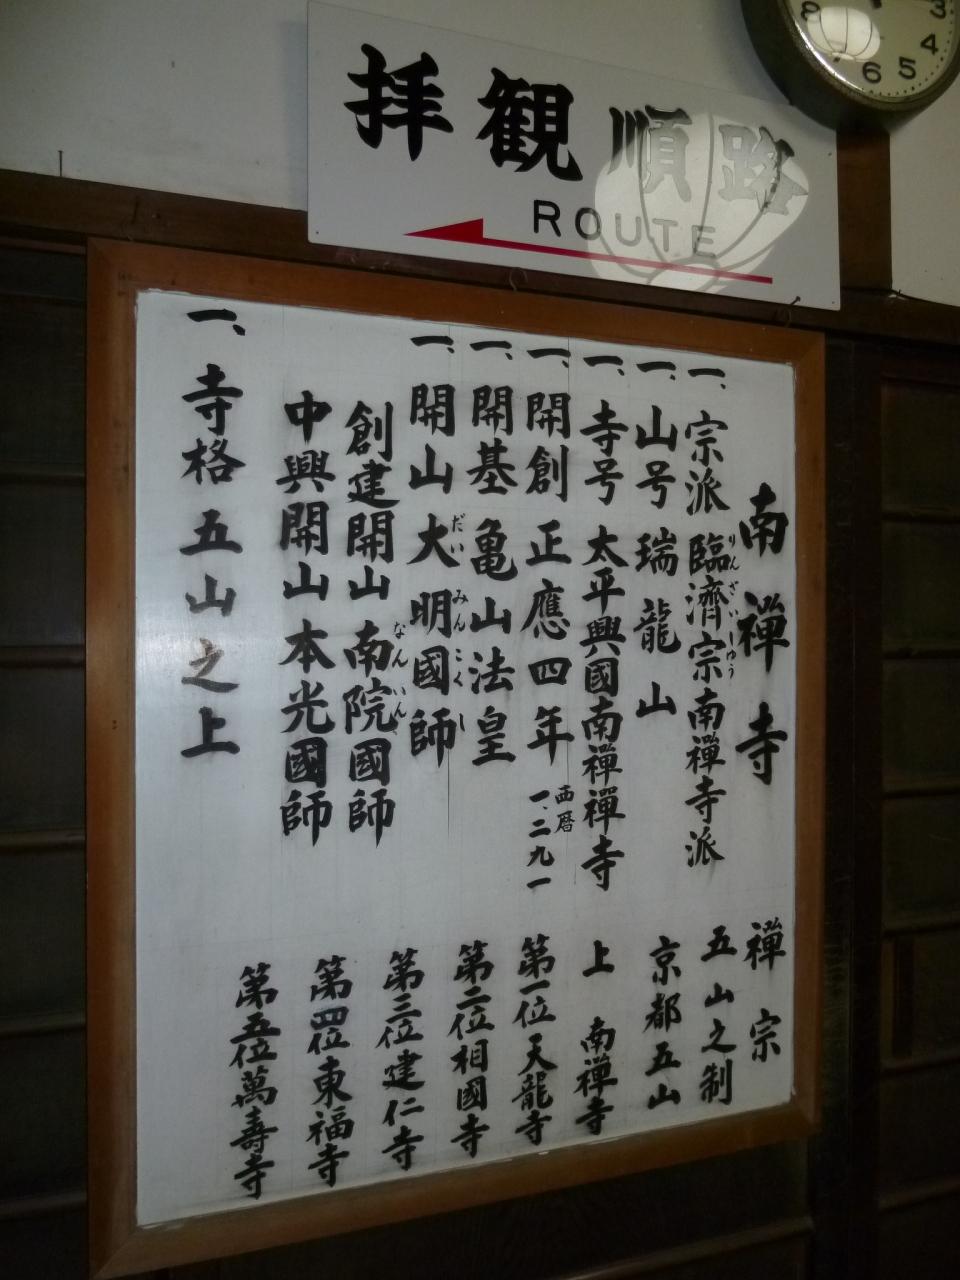 拝観順路
ROUTE
南禅寺
一、宗派 臨濟宗南禅寺派
りんざいしゅう
一、山号 瑞龍山
一、寺号 太平興國南禅禅寺
一、開創 正應四年 西暦 一、二九一
一、開基 亀山法皇
一、開山 大明國師
だいみんこくし
創建開山 南院國師
なんいん
中興開山 本光國師
一、寺格 五山之上
禅宗
五山之制
京都五山
上 南禅寺
第一位天龍寺
第二位相國寺
第三位建仁寺
第四位東福寺
第五位萬壽寺
8
6
5
4
3